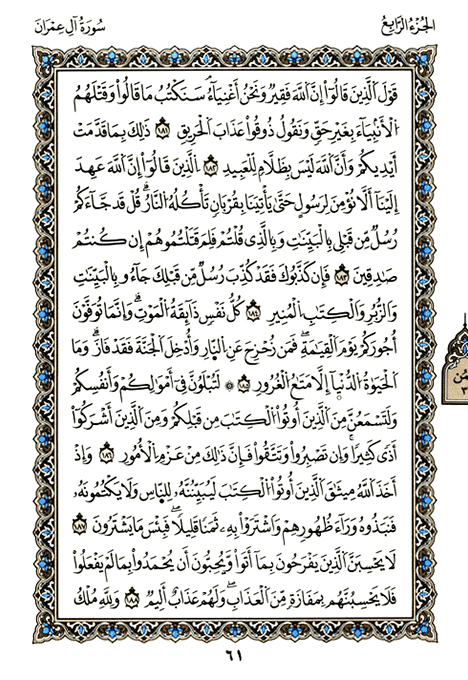 الجُزْءُ الرَّابِعُ
سُورَةُ آلِ عِمْرَان
قَوْلَ ٱلَّذِينَ قَالُوٓاْ إِنَّ ٱللَّهَ فَقِيرٌ وَنَحْنُ أَغْنِيَآءُ سَنَكْتُبُ مَا قَالُواْ وَقَتْلَهُمُ
ٱلْأَنۢبِيَآءَ بِغَيْرِ حَقٍّ وَنَقُولُ ذُوقُواْ عَذَابَ ٱلْحَرِيقِ ١٨١ ذَٰلِكَ بِمَا قَدَّمَتْ
أَيْدِيكُمْ وَأَنَّ ٱللَّهَ لَيْسَ بِظَلَّامٍ لِّلْعَبِيدِ ١٨٢ ٱلَّذِينَ قَالُوٓاْ إِنَّ ٱللَّهَ عَهِدَ
إِلَيْنَآ أَلَّا نُؤْمِنَ لِرَسُولٍ حَتَّىٰ يَأْتِيَنَا بِقُرْبَانٍ تَأْكُلُهُ ٱلنَّارُ قُلْ قَد جَّآءَكُمْ
رُسُلٌ مِّن قَبْلِى بِٱلْبَيِّنَٰتِ وَبِٱلَّذِى قُلْتُمْ فَلِمَ قَتَلْتُمُوهُمْ إِن كُنتُمْ
صَٰدِقِينَ ١٨٣ فَإِن كَذَّبُوكَ فَقَدْ كُذِّبَ رُسُلٌ مِّن قَبْلِكَ جَآءُو بِٱلْبَيِّنَٰتِ
وَٱلزُّبُرِ وَٱلْكِتَٰبِ ٱلْمُنِيرِ ١٨٤ كُلُّ نَفْسٍ ذَآئِقَةُ ٱلْمَوْتِ وَإِنَّمَا تُوَفَّوْنَ
أُجُورَكُمْ يَوْمَ ٱلْقِيَٰمَةِ فَمَن زُحْزِحَ عَنِ ٱلنَّارِ وَأُدْخِلَ ٱلْجَنَّةَ فَقَدْ فَازَ وَمَا
ٱلْحَيَوٰةُ ٱلدُّنْيَآ إِلَّا مَتَٰعُ ٱلْغُرُورِ ١٨٥ لَتُبْلَوُنَّ فِىٓ أَمْوَٰلِكُمْ وَأَنفُسِكُمْ
وَلَتَسْمَعُنَّ مِنَ ٱلَّذِينَ أُوتُواْ ٱلْكِتَٰبَ مِن قَبْلِكُمْ وَمِنَ ٱلَّذِينَ أَشْرَكُوٓاْ
أَذًى كَثِيرًا وَإِن تَصْبِرُواْ وَتَتَّقُواْ فَإِنَّ ذَٰلِكَ مِنْ عَزْمِ ٱلْأُمُورِ ١٨٦ وَإِذْ
أَخَذَ ٱللَّهُ مِيثَٰقَ ٱلَّذِينَ أُوتُواْ ٱلْكِتَٰبَ لَيُبَيِّنُنَّهُۥ لِلنَّاسِ وَلَا يَكْتُمُونَهُۥ
فَنَبَذُوهُ وَرَآءَ ظُهُورِهِمْ وَٱشْتَرَوْاْ بِهِۦ ثَمَنًا قَلِيلًا فَبِئْسَ مَا يَشْتَرُونَ ١٨٧
لَا يَحْسِبَنَّ ٱلَّذِينَ يَفْرَحُونَ بِمَآ أَتَواْ وَّيُحِبُّونَ أَن يُحْمَدُواْ بِمَا لَمْ يَفْعَلُواْ
فَلَا يَحْسِبُنَّهُم بِمَفَازَةٍ مِّنَ ٱلْعَذَابِ وَلَهُمْ عَذَابٌ أَلِيمٌ ١٨٨ وَلِلَّهِ مُلْكُ
٦١